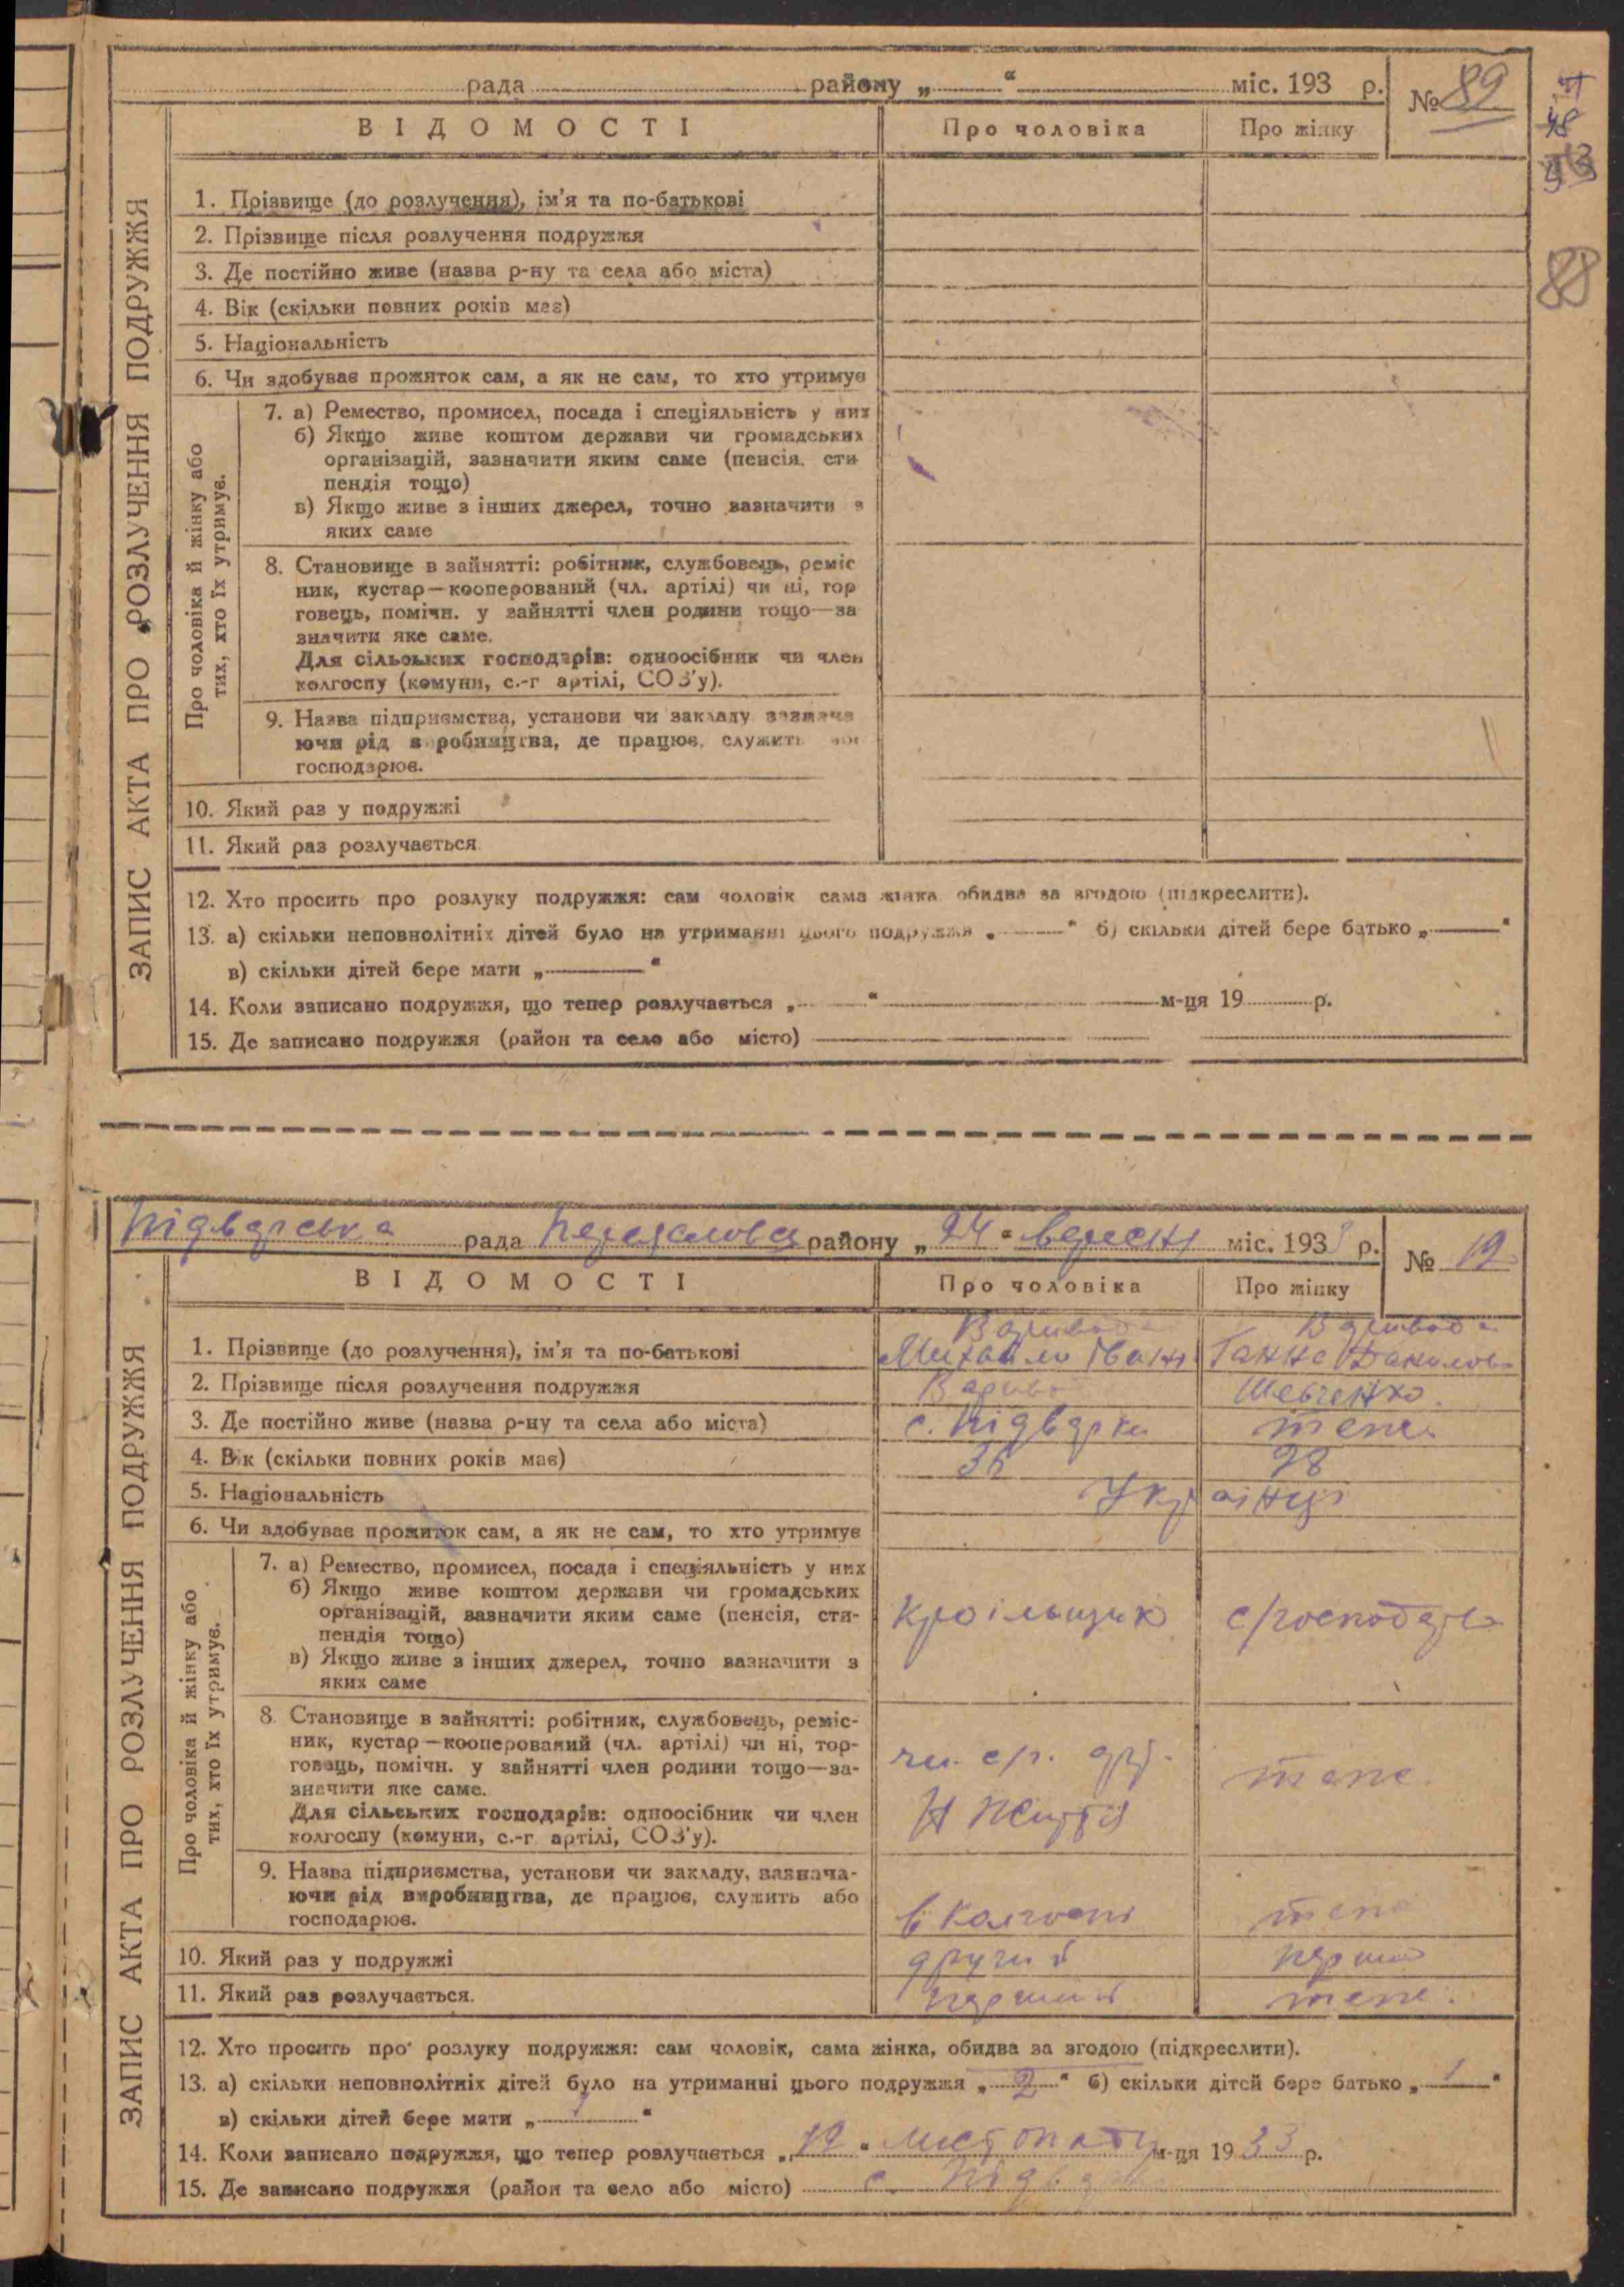 рада району „ “ міс. 193 р.
№ 89
ВІДОМОСТІ Про чоловіка Про жінку
48
88
ЗАПИС АКТА ПРО РОЗЛУЧЕННЯ ПОДРУЖЖЯ
1. Прізвище (до розлучення), ім’я та по-батькові
2. Прізвище після розлучення подружжя
3. Де постійно живе (назва р-ну та села або міста)
4. Вік (скільки повних років має)
5. Національність
6. Чи здобуває прожиток сам, а як не сам, то хто утримує
Про чоловіка й жінку або
тих, хто їх утримує.
7. а) Ремество, промисел, посада і спеціяльність у них
б) Якщо живе коштом держави чи громадських
організацій, зазначити яким саме (пенсія, сти-
пендія тощо)
в) Якщо живе з інших джерел, точно зазначити з
яких саме
8. Становище в зайнятті: робітник, службовець, реміс
ник, кустар—кооперований (чл. артілі) чи ні, тор
говець, помічн. у зайнятті член родини тощо—за
значити яке саме.
Для сільських господарів: одноосібник чи член
колгоспу (комуни, с.-г артілі, СОЗ’у).
9. Назва підприємства, установи чи закладу зазнача
ючи рід виробництва, де працює, служить або
господарює.
10. Який раз у подружжі
11. Який раз розлучається
12. Хто просить про розлуку подружжя: сам чоловік сама жінка обидва за згодою (підкреслити).
13. а) скільки неповнолітніх дітей було на утриманні цього подружжя „ “ б) скільки дітей бере батько „ “
в) скільки дітей бере мати „ “
14. Коли записано подружжя, що тепер розлучається „ “ м-ця 19 р.
15. Де записано подружжя (район та село або місто)
Підварська рада району „ 24 “ вересня міс. 193 3 р.
№ 19
ВІДОМОСТІ Про чоловіка Про жінку
ЗАПИС АКТА ПРО РОЗЛУЧЕННЯ ПОДРУЖЖЯ
Варивода Варивода
1. Прізвище (до розлучення), ім’я та по-батькові Михайло Іван Ганна Данилов
2. Прізвище після розлучення подружжя Шевченко
3. Де постійно живе (назва р-ну та села або міста) с. Підварки теж
4. Вік (скільки повних років має) 36 28
5. Національність Українці
6. Чи здобуває прожиток сам, а як не сам, то хто утримує
Про чоловіка й жінку або
тих, хто їх утримує.
7. а) Ремество, промисел, посада і спеціяльність у них
б) Якщо живе коштом держави чи громадських
організацій, зазначити яким саме (пенсія, сти-
пендія тощо)
в) Якщо живе з інших джерел, точно зазначити з
яких саме
8. Становище в зайнятті: робітник, службовець, реміс-
ник, кустар—кооперований (чл. артілі) чи ні, тор-
говець, помічн. у зайнятті член родини тощо—за-
значити яке саме.
Для сільських господарів: одноосібник чи член
колгоспу (комуни, с.-г. артілі, СОЗ’у).
Н Життя
9. Назва підприємства, установи чи закладу, зазнача-
ючи рід виробництва, де працює, служить або
господарює. в колгоспі
10. Який раз у подружжі другий перший
11. Який раз розлучається. перший
12. Хто просить про розлуку подружжя: сам чоловік, сама жінка, обидва за згодою (підкреслити).
13. а) скільки неповнолітніх дітей було на утриманні цього подружжя „ 2 “ б) скільки дітей бере батько „ 1 “
в) скільки дітей бере мати „ 1 “
14. Коли записано подружжя, що тепер розлучається „ 12 “ листопаду м-ця 19 33 р.
15. Де записано подружжя (район та село або місто) с.